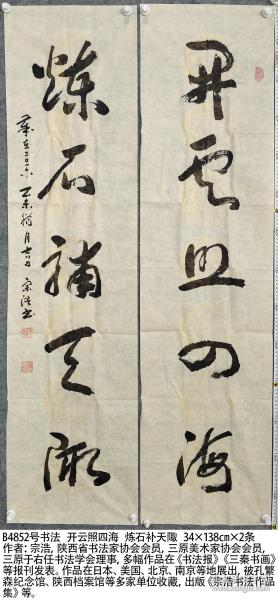 開雲照四海
煉石補天陬
岁在二〇一六 乙未腊月十六日 宗浩书
B4852号书法 开云照四海 炼石补天陬 34×138cm×2条
作者：宗浩，陕西省书法家协会会员，三原美术家协会会员，
三原于右任书法学会理事，多幅作品在《书法报》《三秦书画》
等报刊发表。作品在日本、美国、北京、南京等地展出，被孔繁
森纪念馆、陕西档案馆等多家单位收藏，出版《宗浩书法作品
集》等。